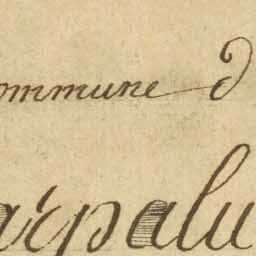 ommune d
arpalu